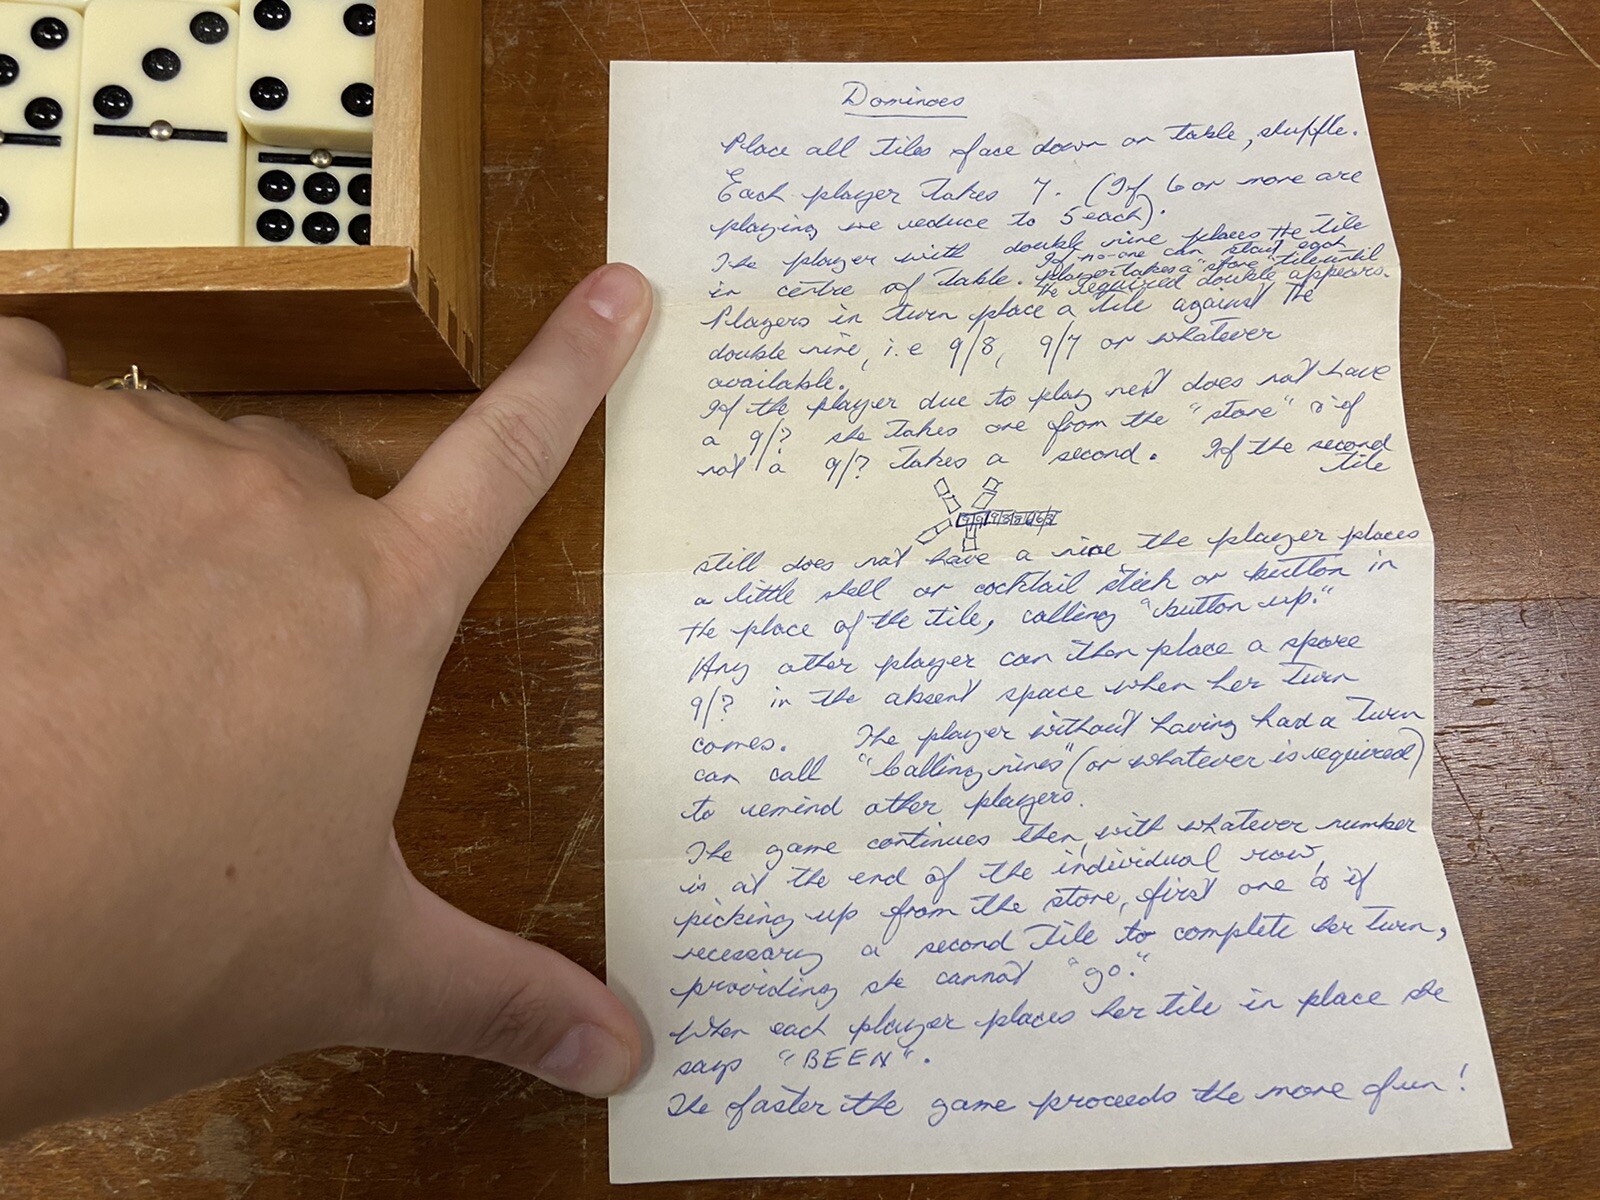 Dominoes
Place all tiles face down on table, shuffle.
Each player takes 7. (If 6 or more are
playing we reduce to 5 each).
The player with double nine places the tile
in centre of table. If no-one can start each
player takes a "store" tile until
the required double appears.
Players in turn place a tile against the
double nine, i.e 9/8, 9/7 or whatever
available.
If the player due to play next does not have
a 9/? she takes one from the "store" & if
not a 9/? takes a second. If the second
tile
still does not have a nine the player places
a little shell or cocktail stick or button in
the place of the tile, calling "button up."
Any other player can then place a spare
9/? in the absent space when her turn
comes. The player without having had a turn
can call "Calling nines" (or whatever is required)
to remind other players.
The game continues then, with whatever number
is at the end of the individual row,
picking up from the store, first one & if
necessary a second tile to complete her turn,
providing she cannot "go."
When each player places her tile in place she
says "BEEN".
The faster the game proceeds the more fun!